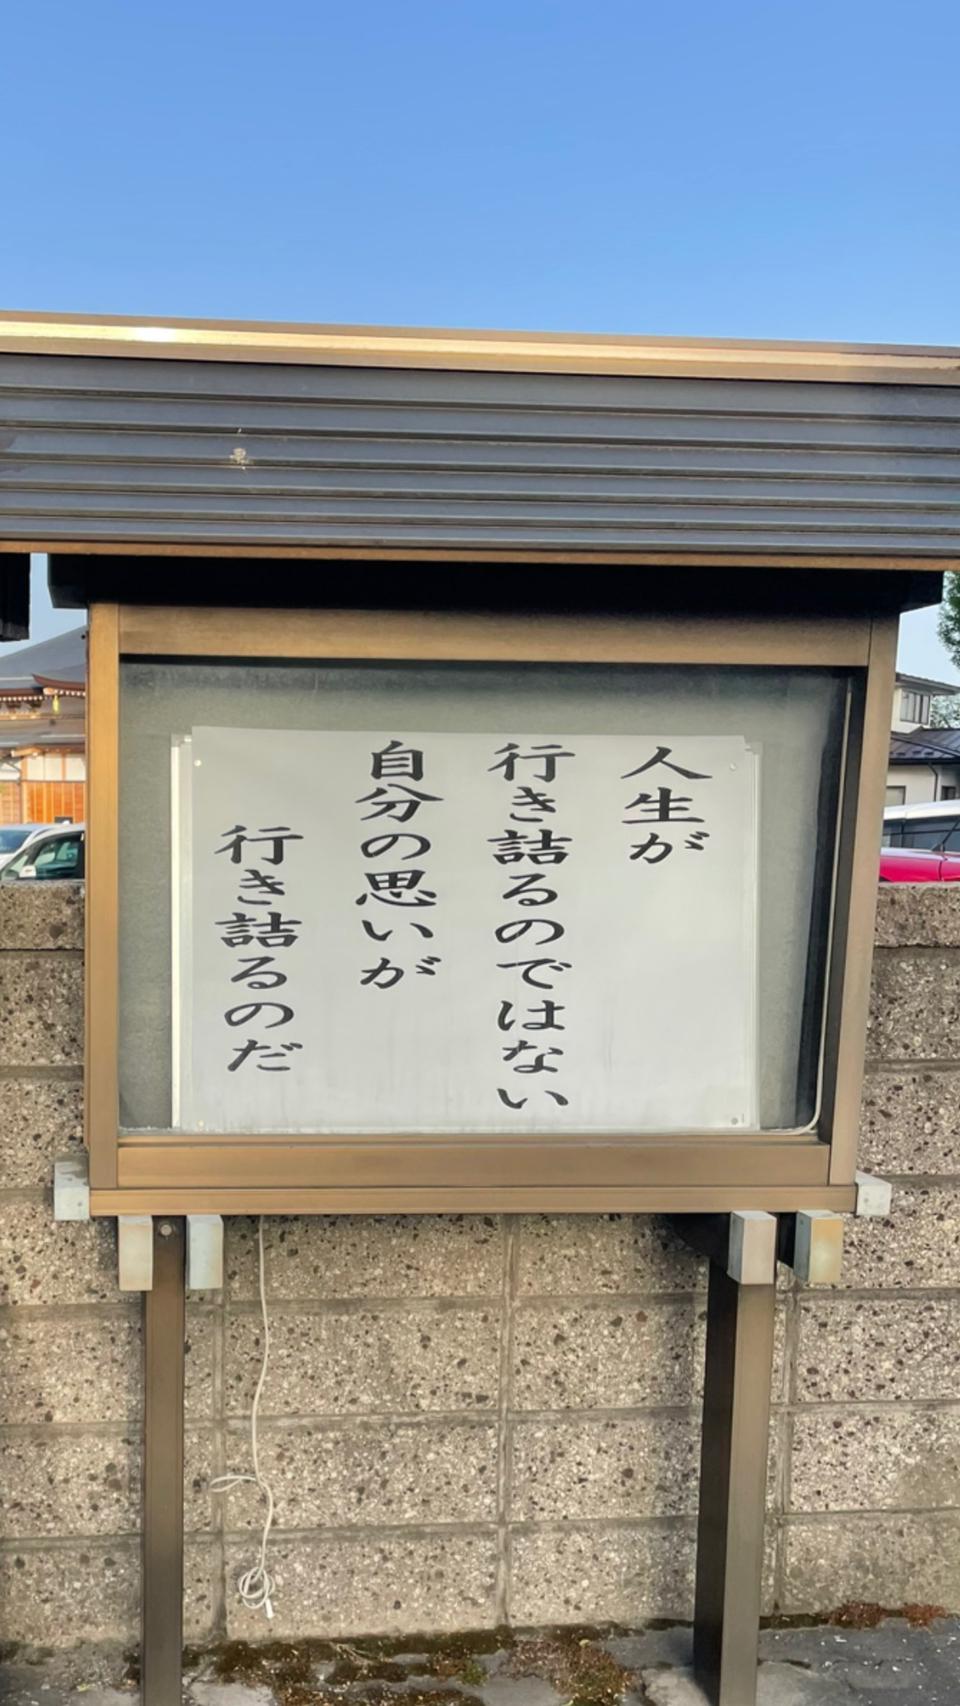 人生が
行き詰るのではない
自分の思いが
行き詰るのだ